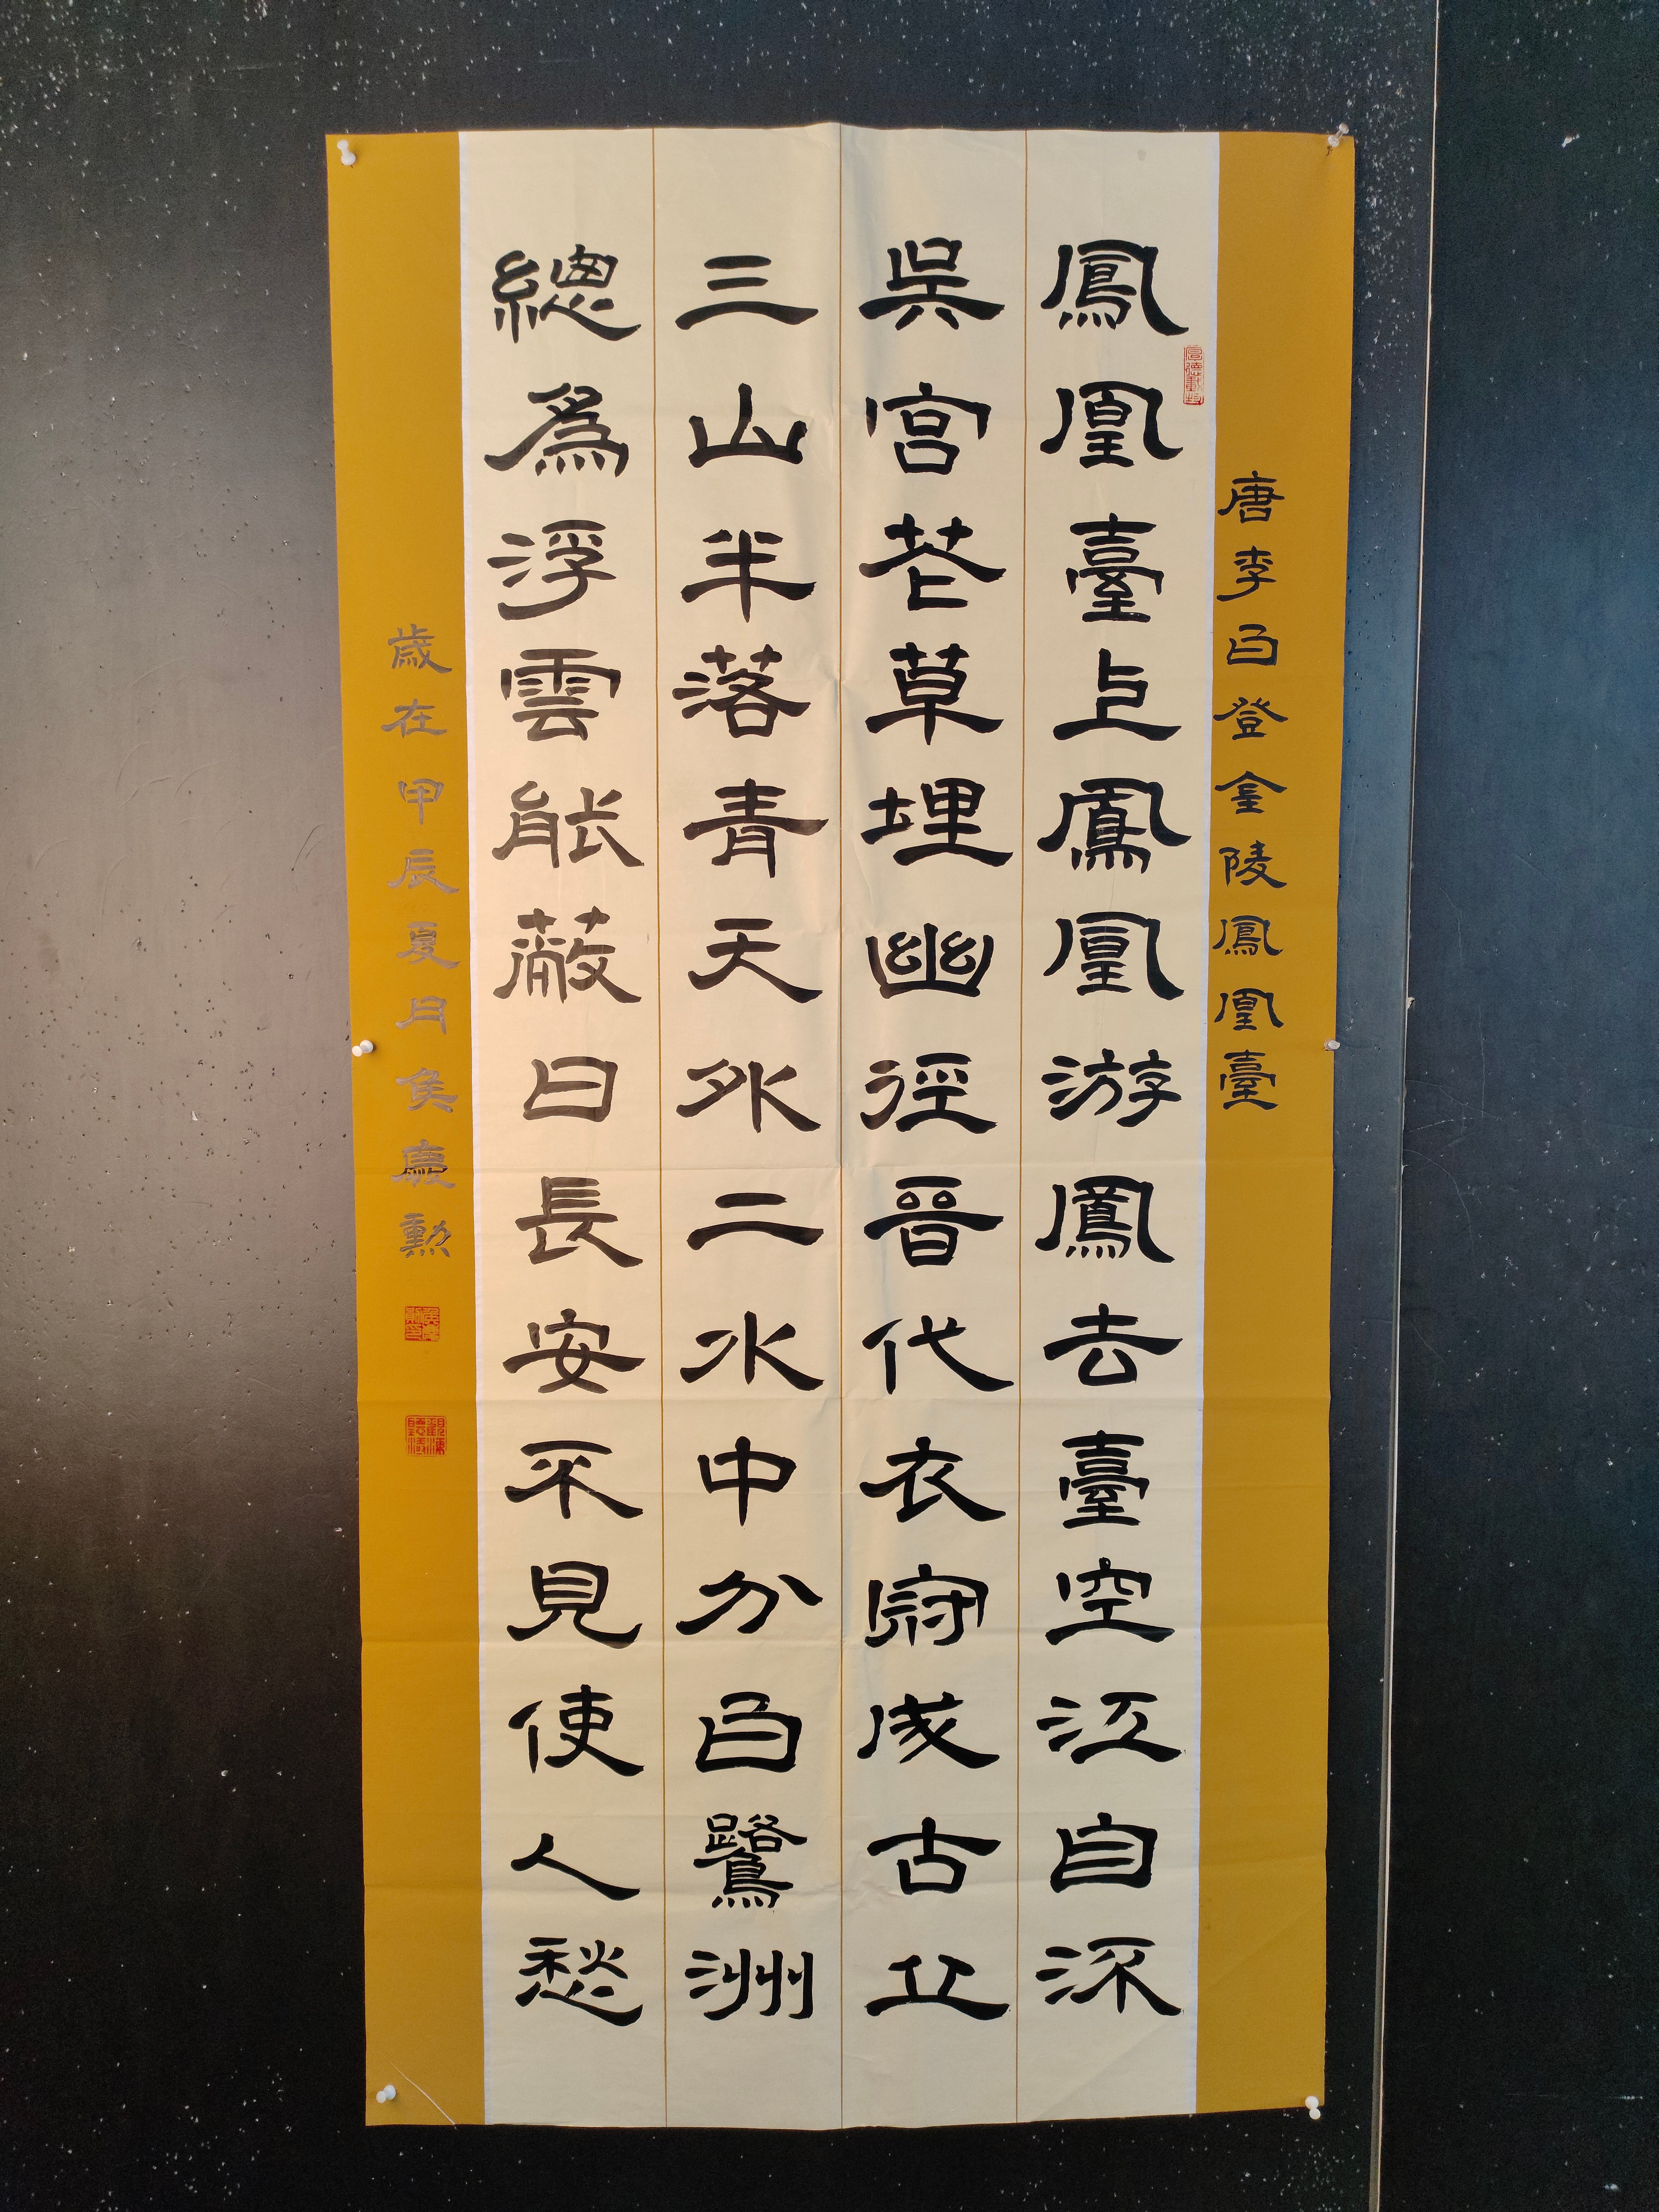 唐李白登金陵鳳凰臺
鳳凰臺上鳳凰游鳳去臺空江自深
吳宮花草埋幽徑晉代衣冠成古丘
三山半落青天外二水中分白鷺洲
總為浮雲能蔽日長安不見使人愁
歲在甲辰夏月侯慶勲
厚德載物